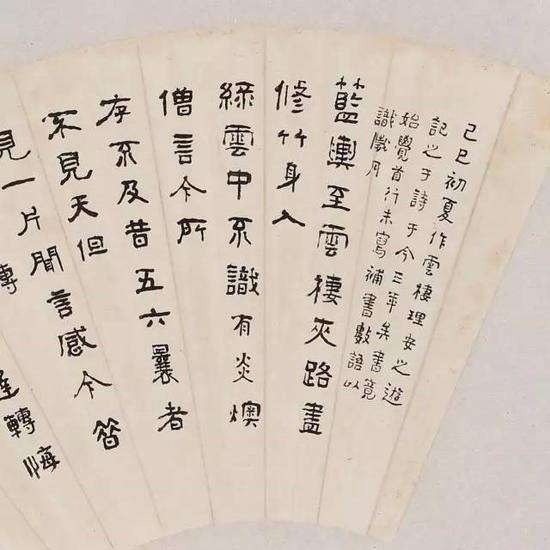 己巳初夏作雲棲理安之遊
記之于詩于今三年矣書竟
始覺首行未寫補書數語以
識歲月
籃輿至雲棲夾路盡
修竹身入
綠雲中不識有炎燠
僧言今所
存不及昔五六曩者
不見天但
見一片聞言感今昔
轉